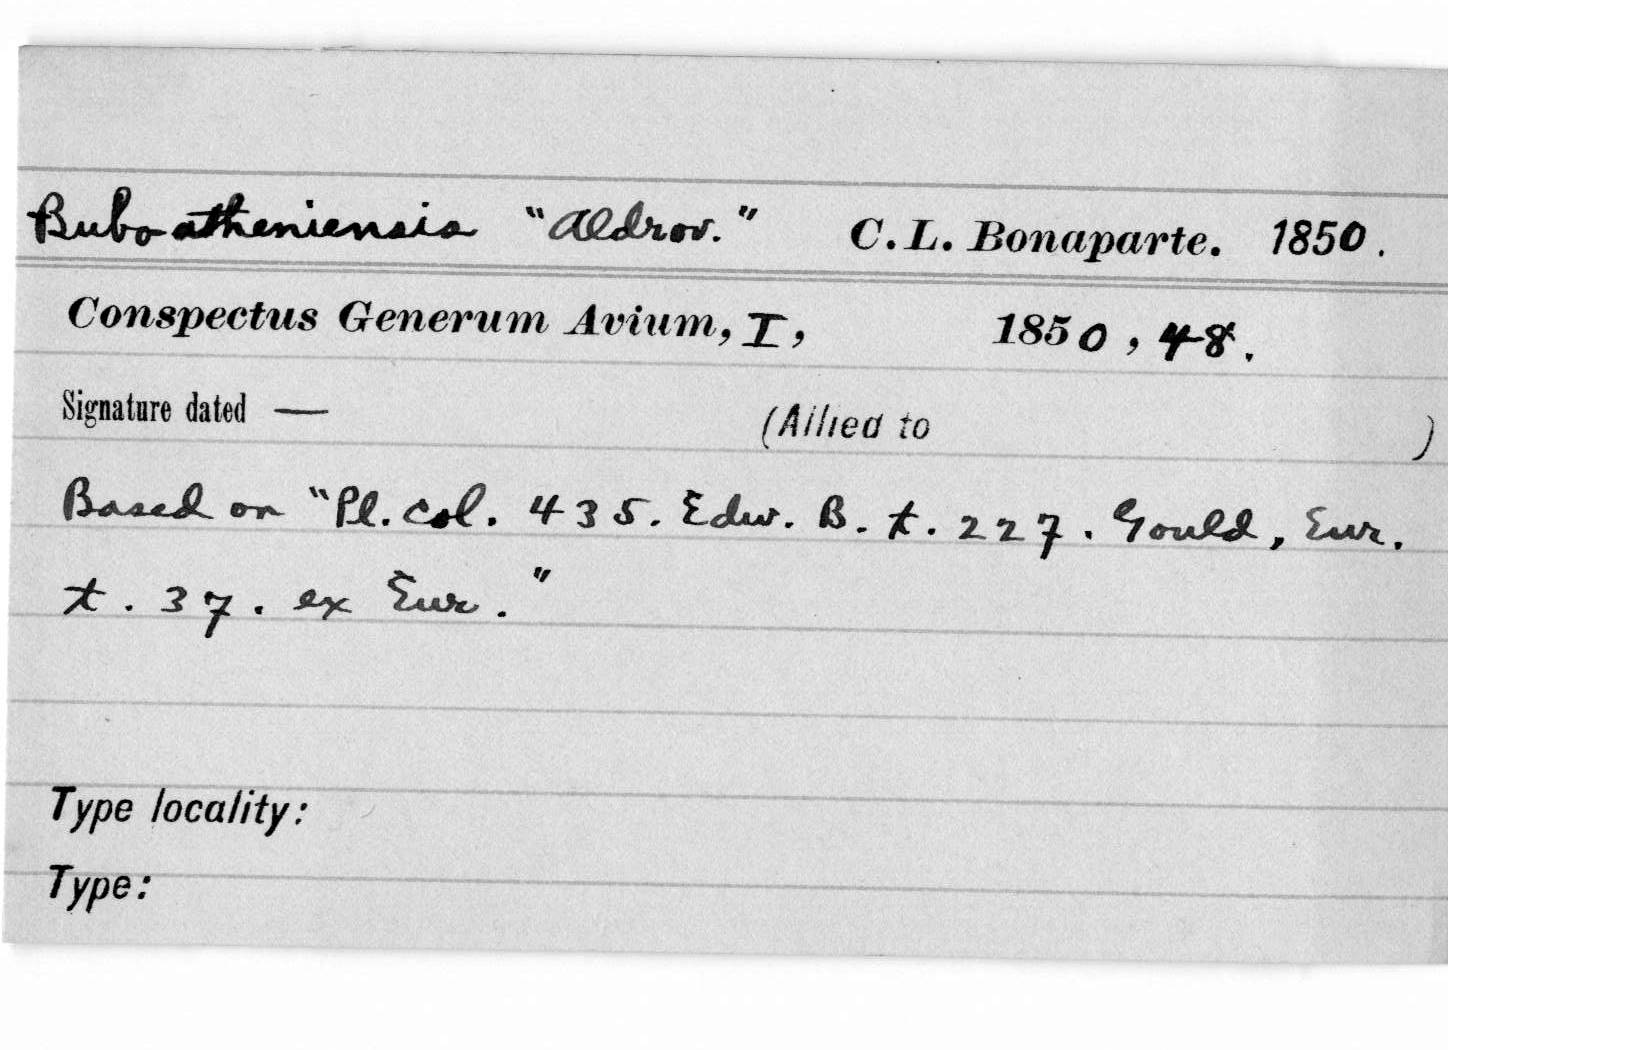 Bubo atheniensis "Aldrov." C. L. Bonaparte. 1850.
Conspectus Generum Avium, I, 1850, 48.
Signature dated — (Allied to )
Based on "Pl. col. 435. Edw. B. t. 227. Gould, Eur.
t. 37. ex Eur."
Type locality:
Type: